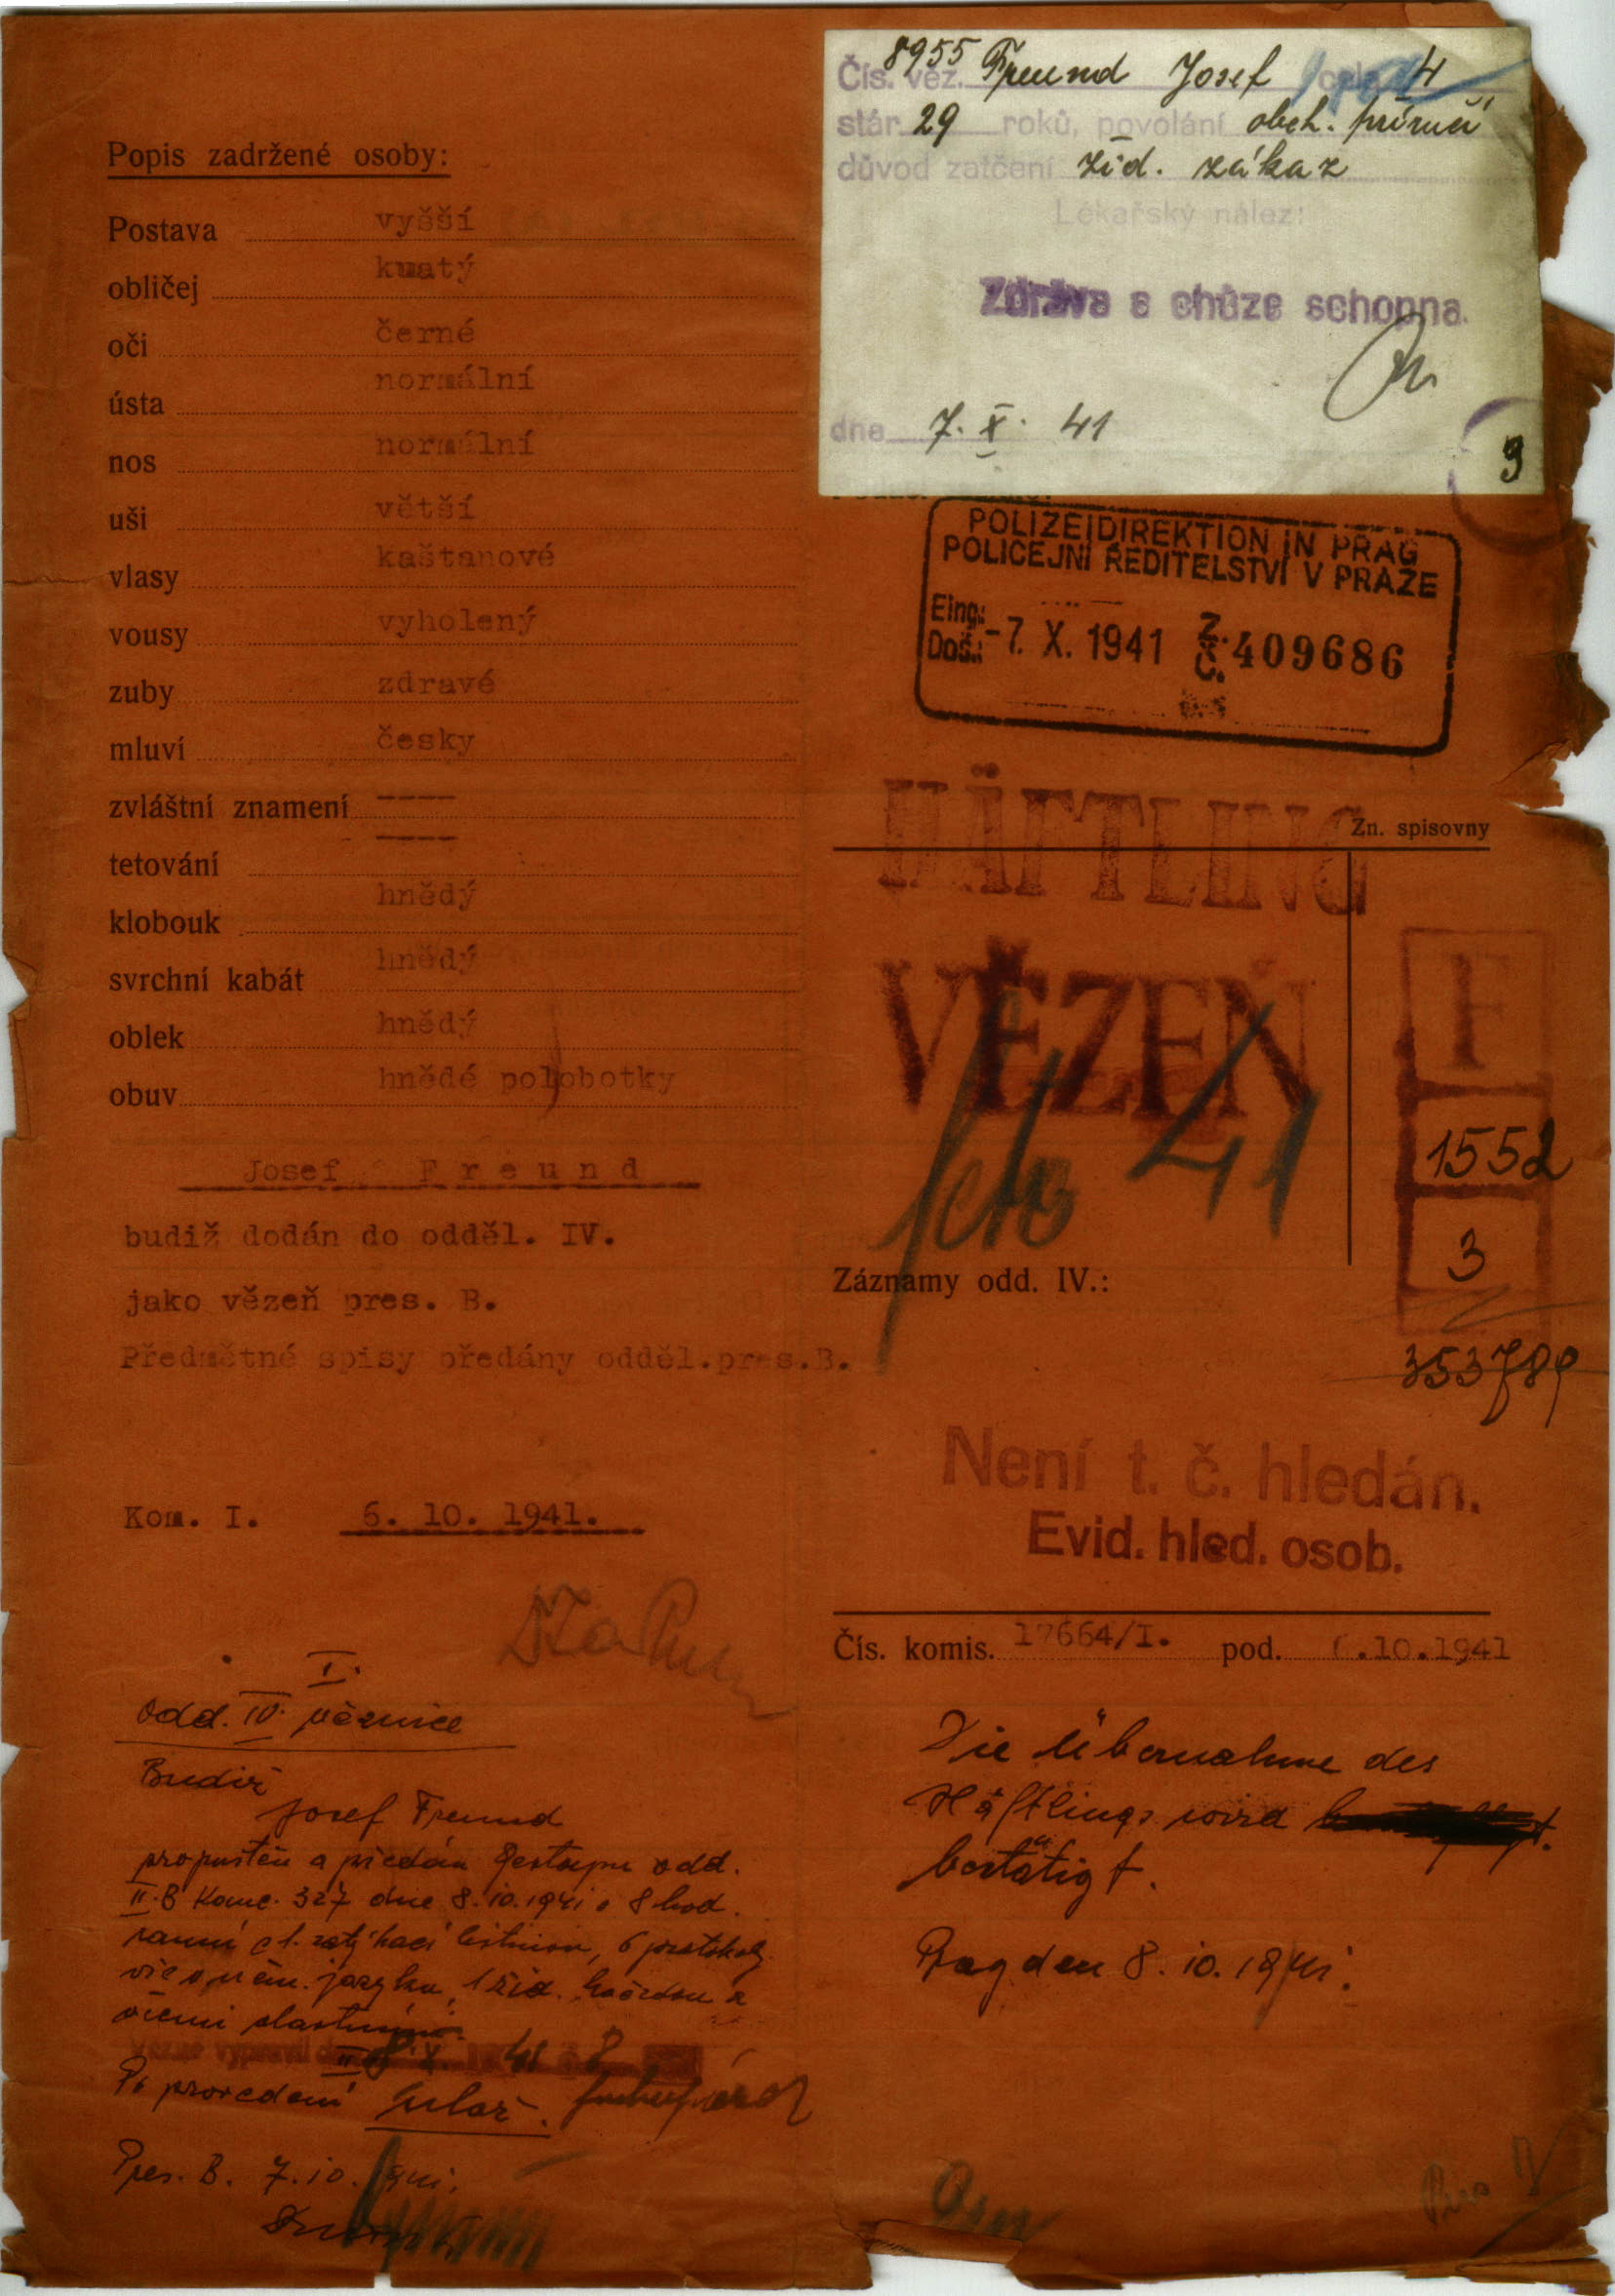 Popis zadržené osoby:
Postava vyšší
obličej kulatý
oči černé
ústa normální
nos normální
uši větší
vlasy kaštanové
vousy vyholený
zuby zdravé
mluví česky
zvláštní znamení ----
tetování ----
klobouk hnědý
svrchní kabát hnědý
oblek hnědý
obuv hnědé polobotky
Josef Freund
budiž dodán do odděl. IV.
jako vězeň pres. B.
Předmětné spisy předány odděl.pres.B.
Kom. I. 6. 10. 1941.
I.
Odd. IV. věznice
Budiž
Josef Freund
propuštěn a předán Gestapu odd.
II.B Komc. 327 dne 8.10.1941 o 8 hod.
ranní s 1. zatýkací listinou, 6 protokoly
vše v něm. jazyku, 1 žid. hvězdou a
všemi
Po provedení
Pres. B. 7.10.1941.
Čís. věz. 8955 Freund Josef cela 4
stár 29 roků, povolání obch. příručí
důvod zatčení žid. zákaz
Lékařský nález:
Zdráva a chůze schopna.
dne 7. X. 41
9
POLIZEIDIREKTION IN PRAG
POLICEJNÍ ŘEDITELSTVÍ V PRAZE
Eing.:
Doš.: -7. X. 1941 Z. Č. 409686
HÄFTLING
Zn. spisovny
VĚZEŇ
41
F
1552
3
353789
Záznamy odd. IV.:
Není t. č. hledán.
Evid. hled. osob.
Čís. komis. 17664/I. pod. 6.10.1941
Die Übernahme des
Häftlings wird
bestätigt.
Prag den 8.10.1941.